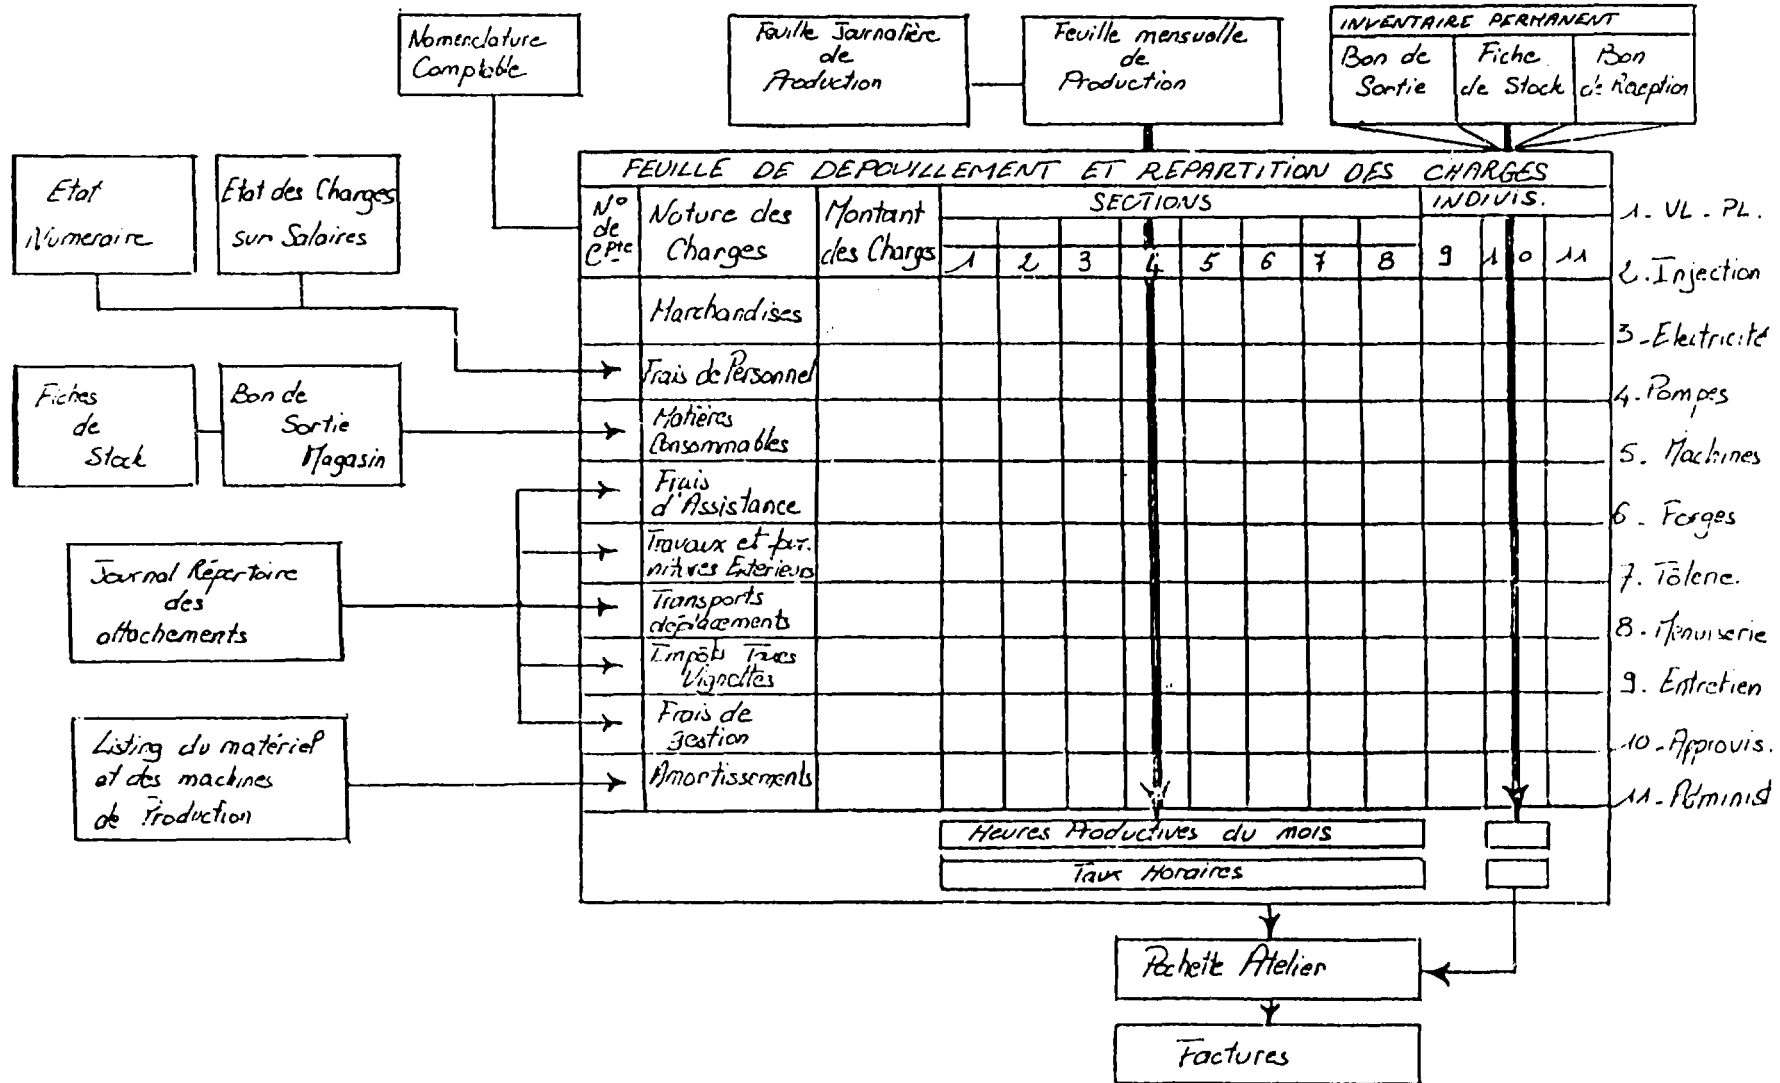 Nomenclature
Comptable
Feuille Journalière
de
Production
Feuille mensuelle
de
Production
INVENTAIRE PERMANENT
Bon de
Sortie
Fiche
de Stock
Bon
de Réception
Etat
Numeraire
Etat des Charges
sur Salaires
Fiches
de
Stock
Bon de
Sortie
Magasin
Journal Répertoire
des
attachements
Listing du matériel
et des machines
de Production
FEUILLE DE DEPOUILLEMENT ET REPARTITION DES CHARGES
N°
de
Cpte
Nature des
Charges
Montant
des Charges
SECTIONS
INDIVIS.
1 2 3 4 5 6 7 8 9 10 11
Marchandises
Frais de Personnel
Matières
Consommables
Frais
d'Assistance
Travaux et four.
nitures Exterieurs
Transports
déplacements
Impôts Taxes
Vignettes
Frais de
gestion
Amortissements
Heures Productives du mois
Taux Horaires
1. VL. PL.
2. Injection
3. Electricité
4. Pompes
5. Machines
6. Forges
7. Tôlerie.
8. Menuiserie
9. Entretien
10. Approvis.
11. Administ
Pochette Atelier
Factures